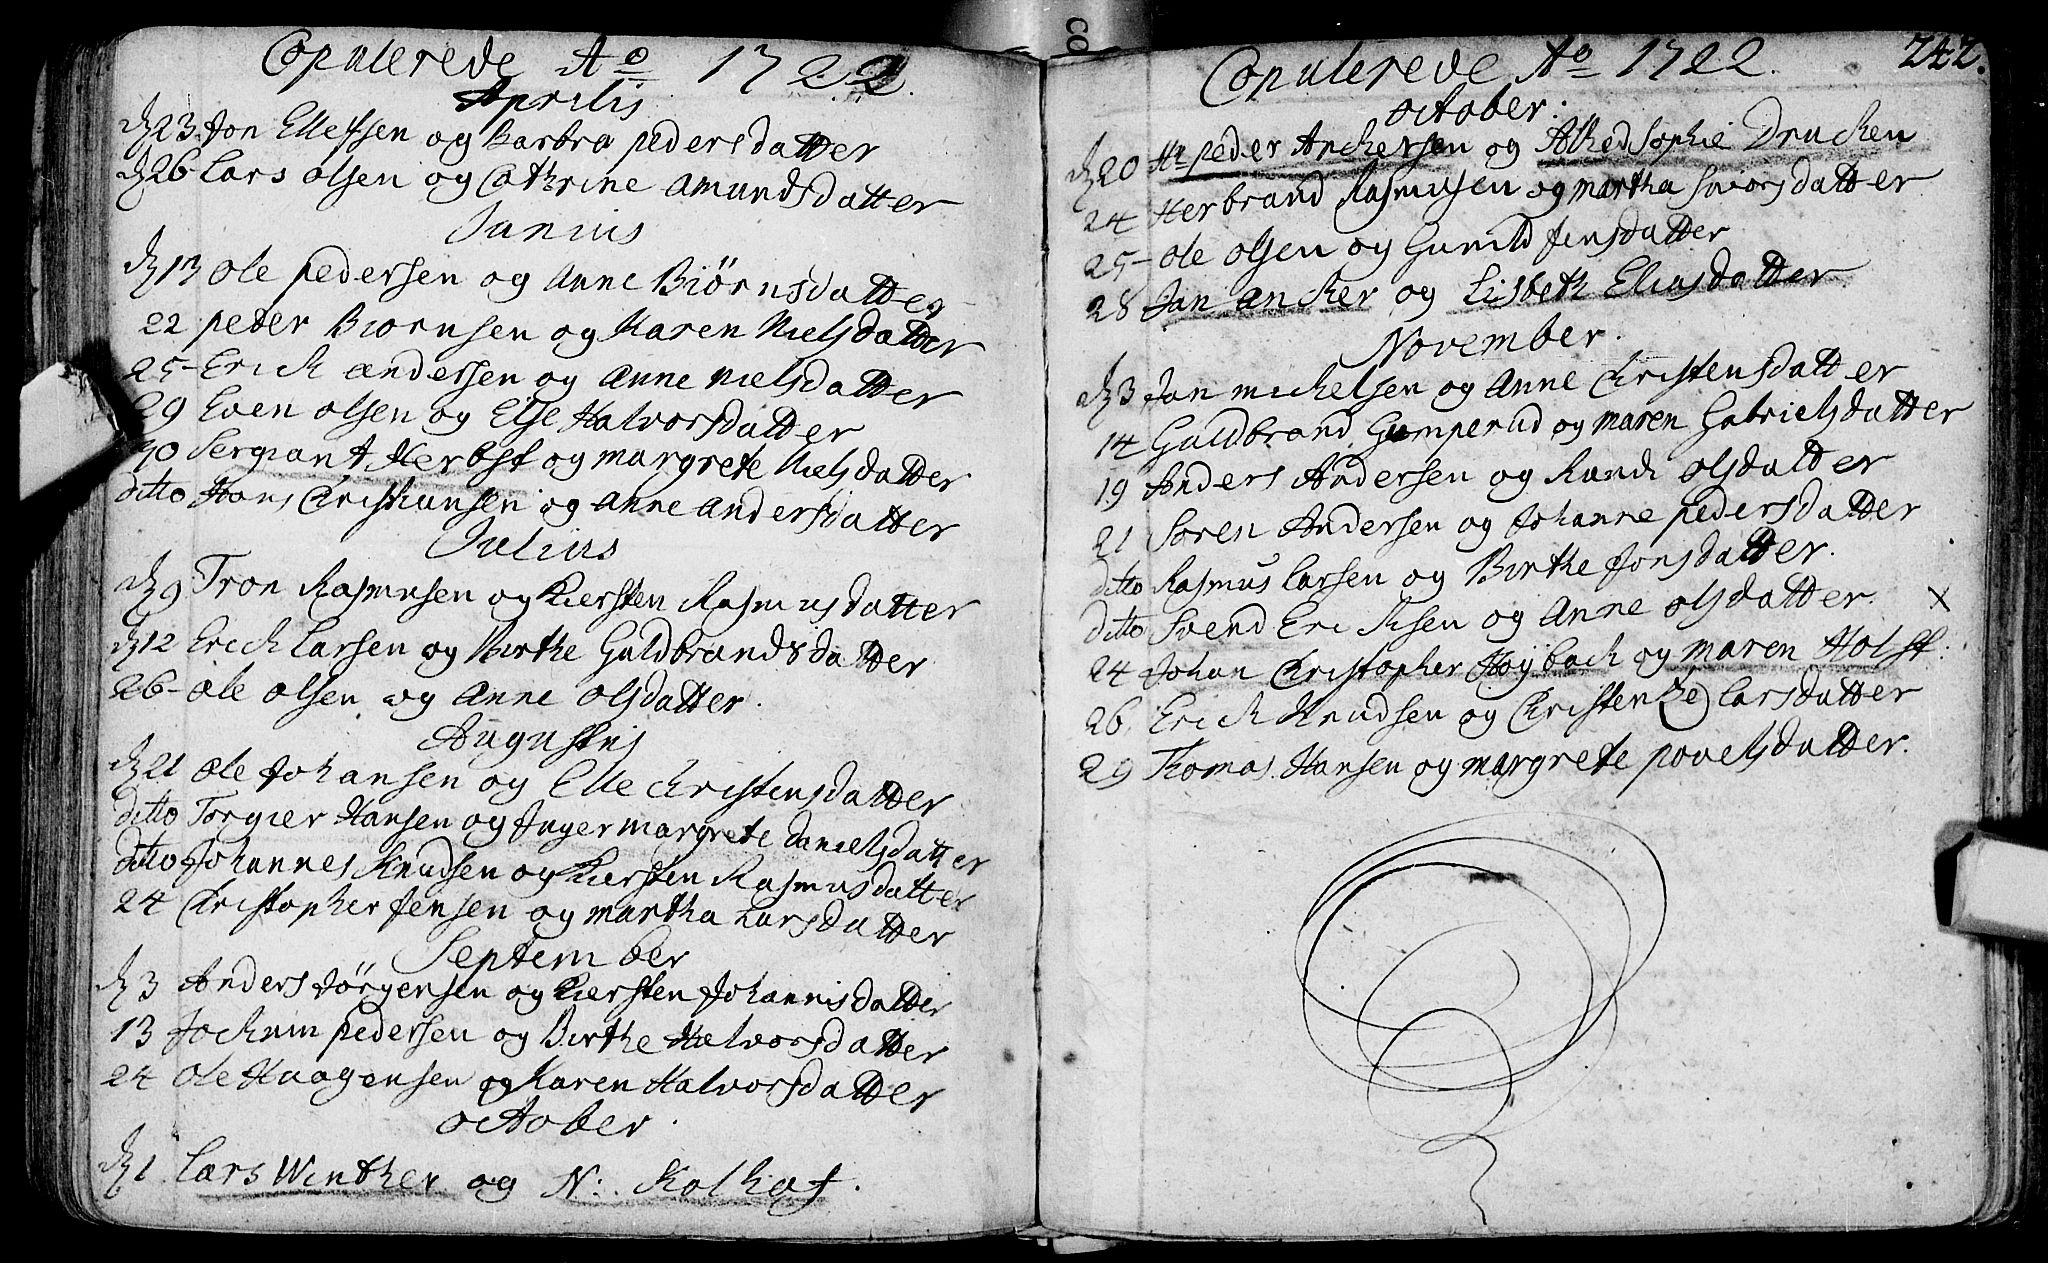 Copulerede Ao 1722.
Aprilis
d 23 Jon Ellefsen og Barbra pedersdatter
d 26 Lars olsen og Cathrine Amundsdatter
Junius
d 13 Ole pedersen og Anne Biörnsdatter
22 peder Biornsen og Karen Nielsdatter
25 Erick andersen og Anne Nielsdatter
29 Even olsen og Else Halvorsdatter
30 Sergiant Herbst og margrete Nielsdatter
ditto Hans Christiansen og Anne andersdatter
Julius
d 9 Tron Rasmusen og Kiersten Rasmusdatter
d 12 Erich Larsen og Birthe Guldbrandsdatter
26 ole olsen og Anne olsdatter.
Augustus
d 21 ole Johansen og Elle Christensdatter
ditto Torgier Hansen og Inger margrete danielsdatter
ditto Johannes Knudsen og Kiersten Rasmusdatter
24 Christopher Jensen og martha Larsdatter
September
d 3 Anders Jörgensen og Kiersten Johannisdatter
13 Jochum pedersen og Birthe Halvorsdatter
24 Ole Haagensen og Karen Halvorsdatter
october.
d 1 Lars Winther og N: Kolhaf.
Copulerede Ao 1722.
242.
october:
d 20 Hr peder Anchersen og Alhed Sophie Drucken
24 Herbrand Rasmusen og martha siversdatter
25 ole olsen og Gunild Jensdatter
28 Jan ancker og Lisbeth Eliasdatter.
November.
d 3 Jan michelsen og Anne Christensdatter
14 Guldbrand Gumperud og maren Gabrielsdatter
19 Anders Andersen og Randi olsdatter
21 Sören Andersen og Johanne pedersdatter
ditto Rasmus Larsen og Birthe Jonsdatter.
ditto Svend Ericksen og Anne olsdatter. x
24 Johan Christopher Höybach og maren Holst:
26 Erick Knudsen og Christen(ze) Larsdatter
29 Thomas Hansen og margrete povelsdatter.